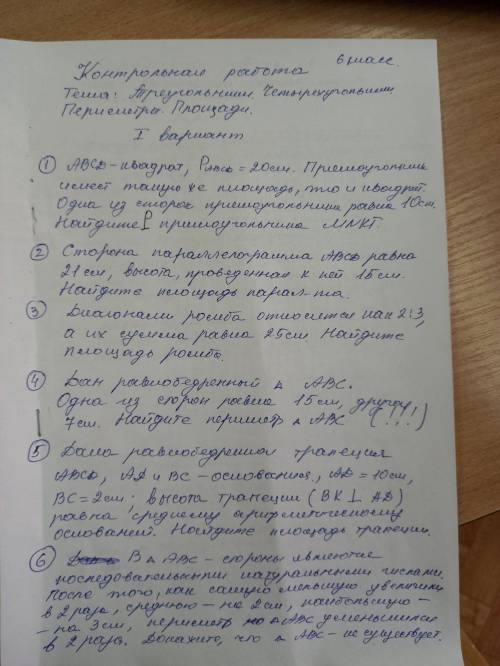 6 класс.
Контрольная работа
Тема: Треугольники. Четырехугольники
Периметры. Площади.
I вариант
① ABCD - квадрат, P_ABCD = 20см. Прямоугольник
имеет такую же площадь, что и квадрат.
Одна из сторон прямоугольника равна 10см.
Найдите P прямоугольника MNKT.
② Сторона параллелограмма ABCD равна
21 см, высота, проведенная к ней 15см.
Найдите площадь парал-ма.
③ Диагонали ромба относятся как 2:3,
а их сумма равна 25см. Найдите
площадь ромба.
④ Дан равнобедренный △ ABC.
Одна из сторон равна 15см, другая
7см. Найдите периметр △ ABC (!!!)
⑤ Дана равнобедренная трапеция
ABCD, AD и BC - основания, AD = 10см,
BC = 2см; высота трапеции (BK ⊥ AD)
равна среднему арифметическому
оснований. Найдите площадь трапеции.
⑥ В △ ABC - стороны являются
последовательными натуральными числами.
После того, как самую меньшую увеличили
в 2 раза, среднюю - на 2см, наибольшую -
- на 3см, периметр △ ABC уменьшился
в 2 раза. Докажите, что △ ABC - не существует.